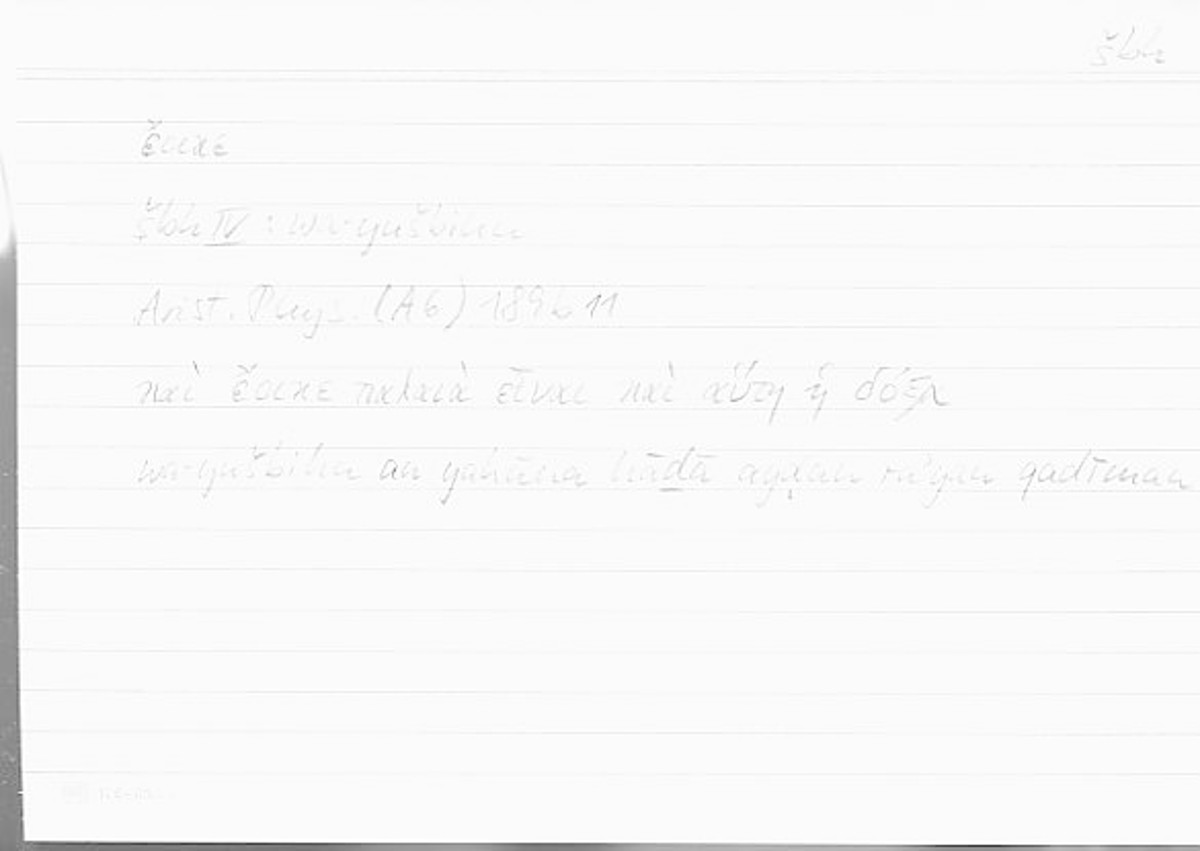 šbh
ἔοικε
šbh IV : wa-yušbihu
Arist. Phys. (A 6) 189b 11
καὶ ἔοικε παλαιὰ εἶναι καὶ αὕτη ἡ δόξα
wa-yušbihu an yakūna hāḏā ayḍan ra'yan qadīman